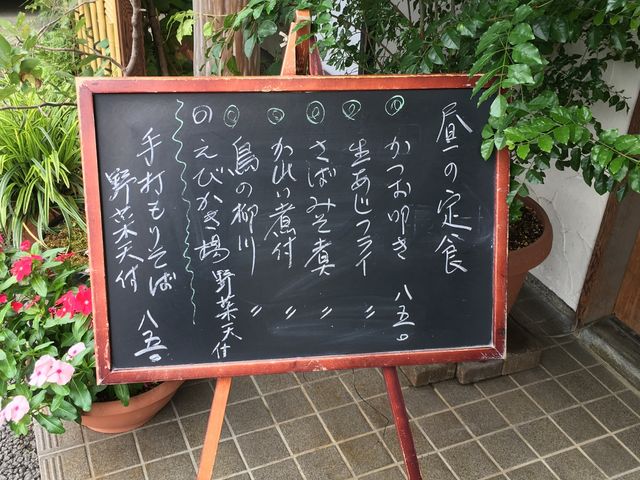 昼の定食
① かつお叩き 八五〇
② 生あじフライ 〃
③ さばみそ煮 〃
④ かれい煮付 〃
⑤ 鳥の柳川 〃
の えびかき揚 野菜天付
手打もりそば
野菜天付 八五〇